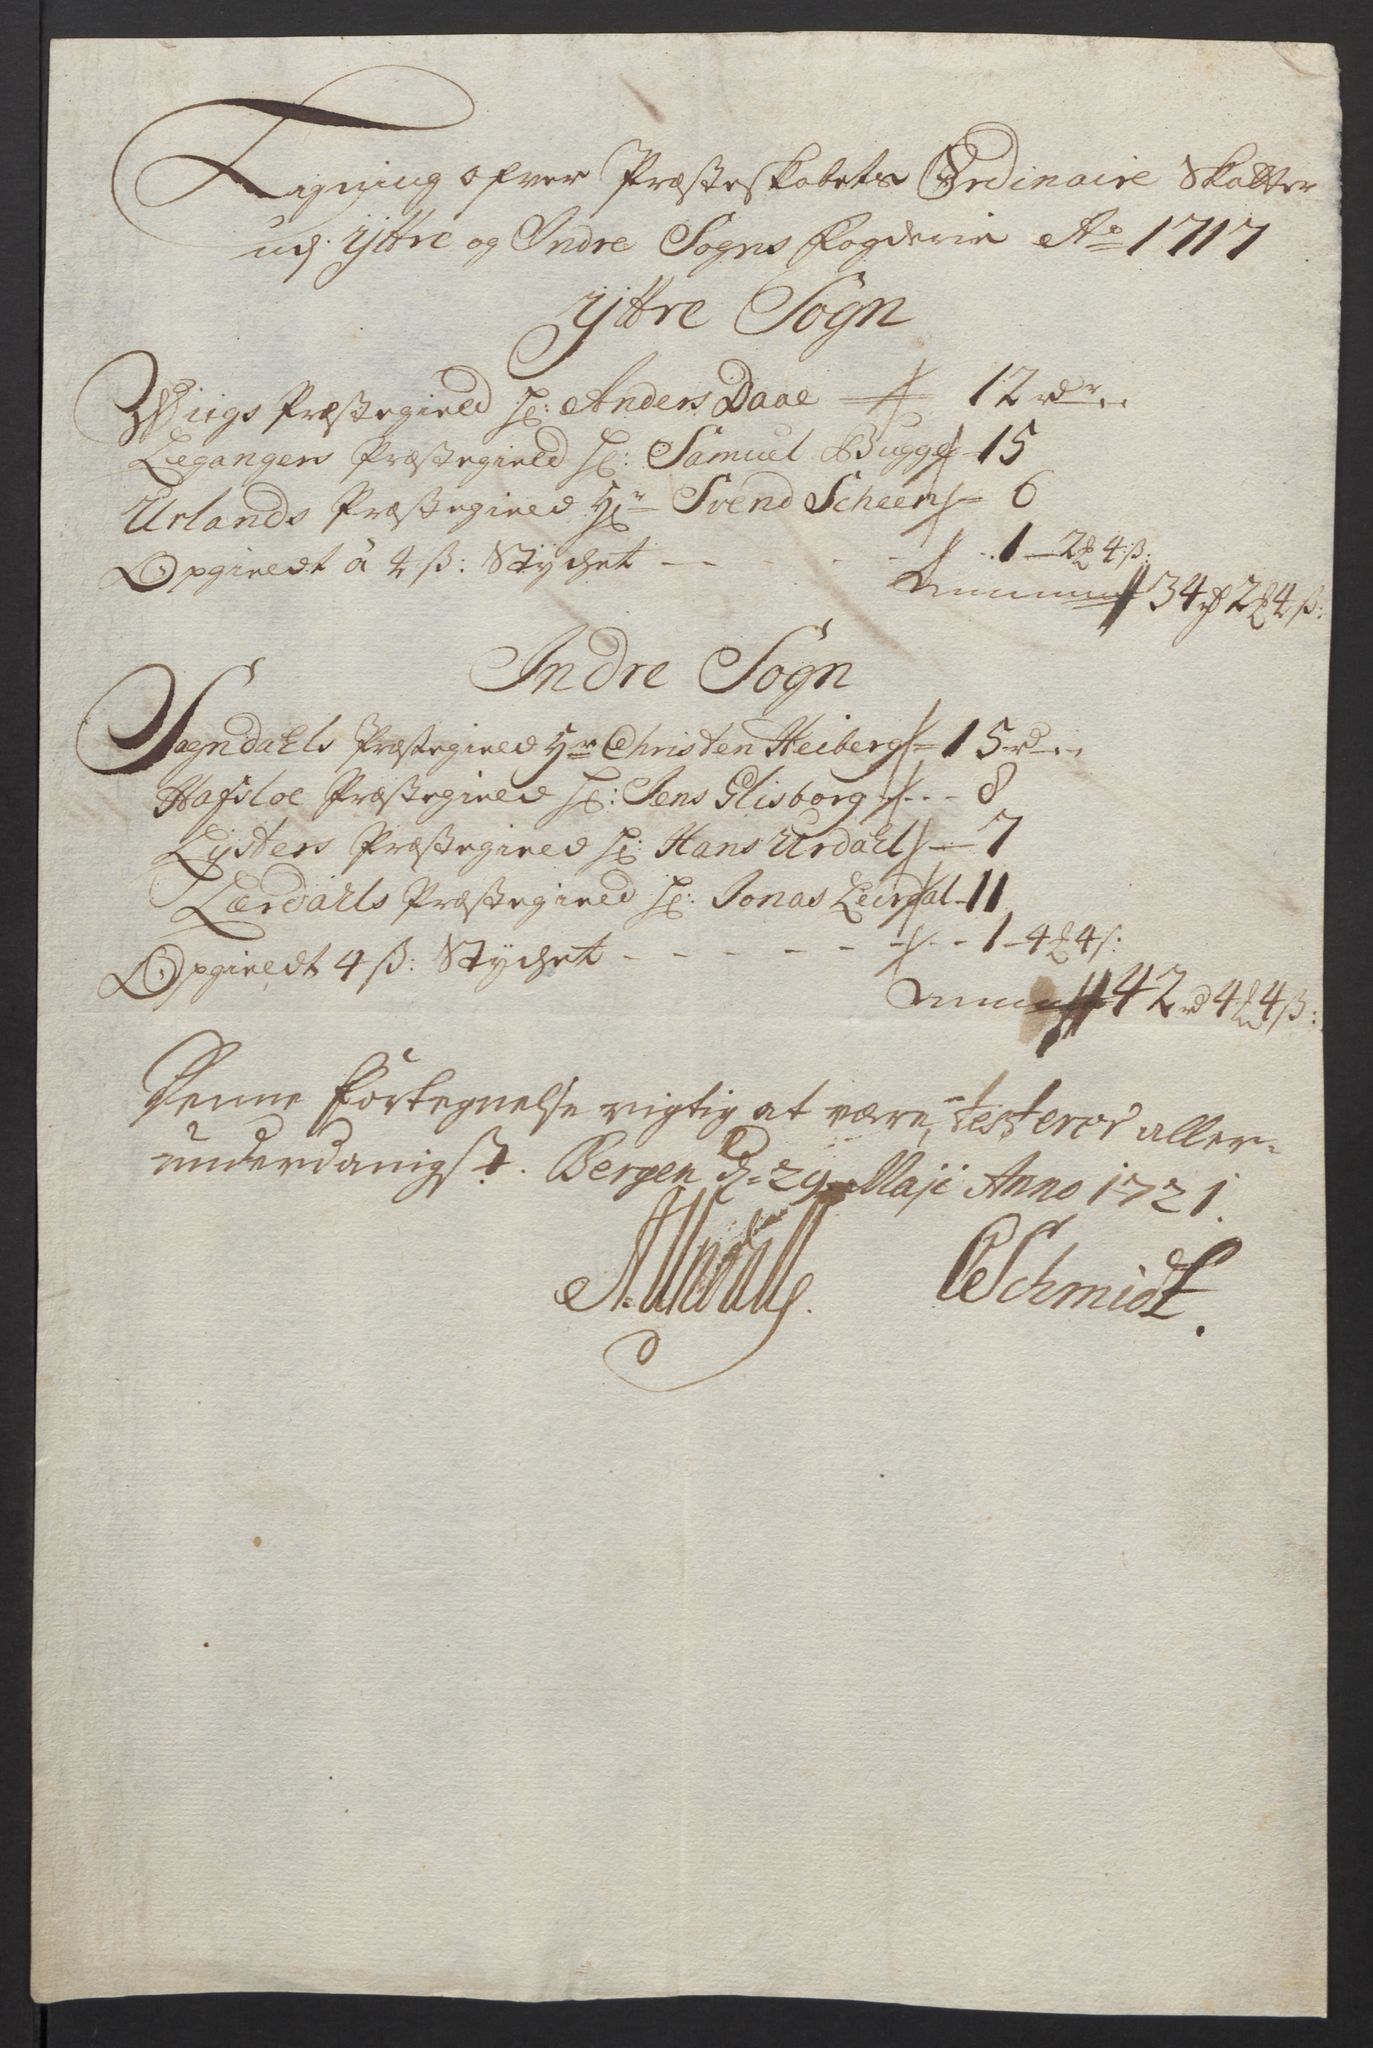 Ligning ofver Præsteskabets Ordinaire Skatter
udj Yttre og Indre Sogns fogderie Ao 1717
Yttre Sogn
Wiigs Præstegield Hr: Anders Daae — 12 rdr
Legangers Præstegield Hr: Samuel Bugge - 15
Urlands Præstegield Hr Svend Scheen - 6
Opgieldt à 4 ß: Stychet - - - - 1 - 2 ℔ 4 ß:
Summa 34 rd 2 ℔ 4 ß:
Indre Sogn
Sogndahls Præstegield Hr Christen Heiberg - 15 rd
Hafsloe Præstegield Hr: Jens Glisborg - - - 8
Lysters Præstegield Hr: Hans Urdahl - 7
Lærdahls Præstegield Hr: Jonas Leirdal - 11
Opgieldt 4 ß: Stychet - - - - - - 1 - 4 ℔ 4 ß:
Summa 42 rd 4 ℔ 4 ß:
Denne fortegnelse rigtig at være, testerer aller-
underdanigst. Bergen d: 29 Maji Anno 1721.
CSchmidt.